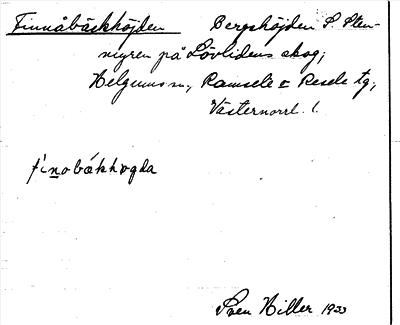 Finnåbäckhöjden Bergshöjden S. Sten-
myren på Lövlidens skog;
Helgums sn, Ramsele o Resele tg,
Västernorrl. l.
fínobǽkhøgda
Sven Hiller 1933